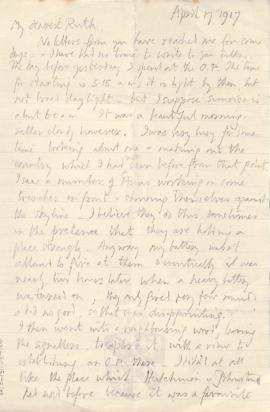 April 17 1917
My dearest Ruth
No letters from you have reached me for some
days - I have had no time to write to you either.
The day before yesterday I spent at the O.P. The time
for starting is 5.15 a.m; it is light by then, but
not broad daylight - but I suppose sunrise is
about 6 a.m. It was a beautiful morning -
rather cloudy, however. I was busy for some
time looking about me & making out the
country which I had seen before from that point.
I saw a number of Huns working on some
trenches in front - showing themselves against
the skyline - I believe they do this sometimes
in the pretence that they are holding a
place strongly. Anyway my battery wasn't
allowed to fire at them & eventually it was
nearly two hours later when a heavy battery
was turned on; they only fired very few rounds
& did no good, so that was disappointing.
I then went with a neighbouring
signallers, to explore it with a view to
establishing an O.P. there. I didn't at all
like the place which Hutchinson & Johnstone
had used before because it was a favourite